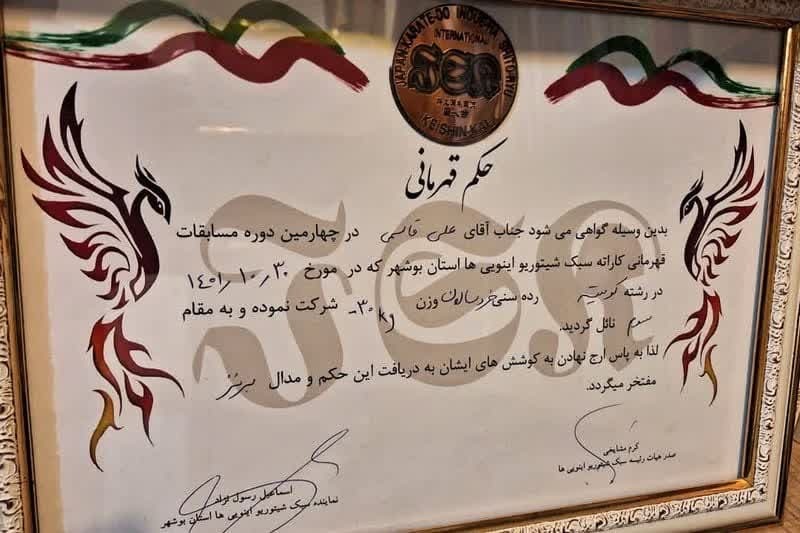 JAPAN KARATE-DO INOUEHA SHITO-RYU
INTERNATIONAL
KEISHIN-KAI
حکم قهرمانی
بدین وسیله گواهی می شود جناب آقای علی قاسمی در چهارمین دوره مسابقات
قهرمانی کاراته سبک شیتوریو اینویی ها استان بوشهر که در مورخ ۱۴۰۱/۱۰/۳۰
در رشته کومیته رده سنی خردسالان وزن ۳۰kg- شرکت نموده و به مقام
سوم نائل گردید.
لذا به پاس ارج نهادن به کوشش های ایشان به دریافت این حکم و مدال برنز
مفتخر میگردد.
کرم مشایخی
صدر هیات رئیسه سبک شیتوریو اینویی ها
اسماعیل رسول نژاد
نماینده سبک شیتوریو اینویی ها استان بوشهر